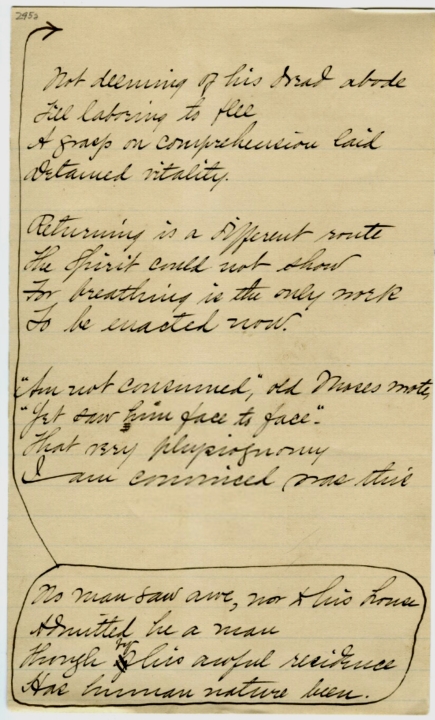 245a
Not deeming of his dread abode
Till laboring to flee
A grasp on comprehension laid
Detained vitality.
Returning is a different route
The Spirit could not show
For breathing is the only work
To be enacted now.
"Am not consumed," old Moses wrote,
"Yet saw him face to face".
That very physiognomy
I am convinced was this
No man saw awe, nor to his house
Admitted he a man
Though by his awful residence
Has human nature been.